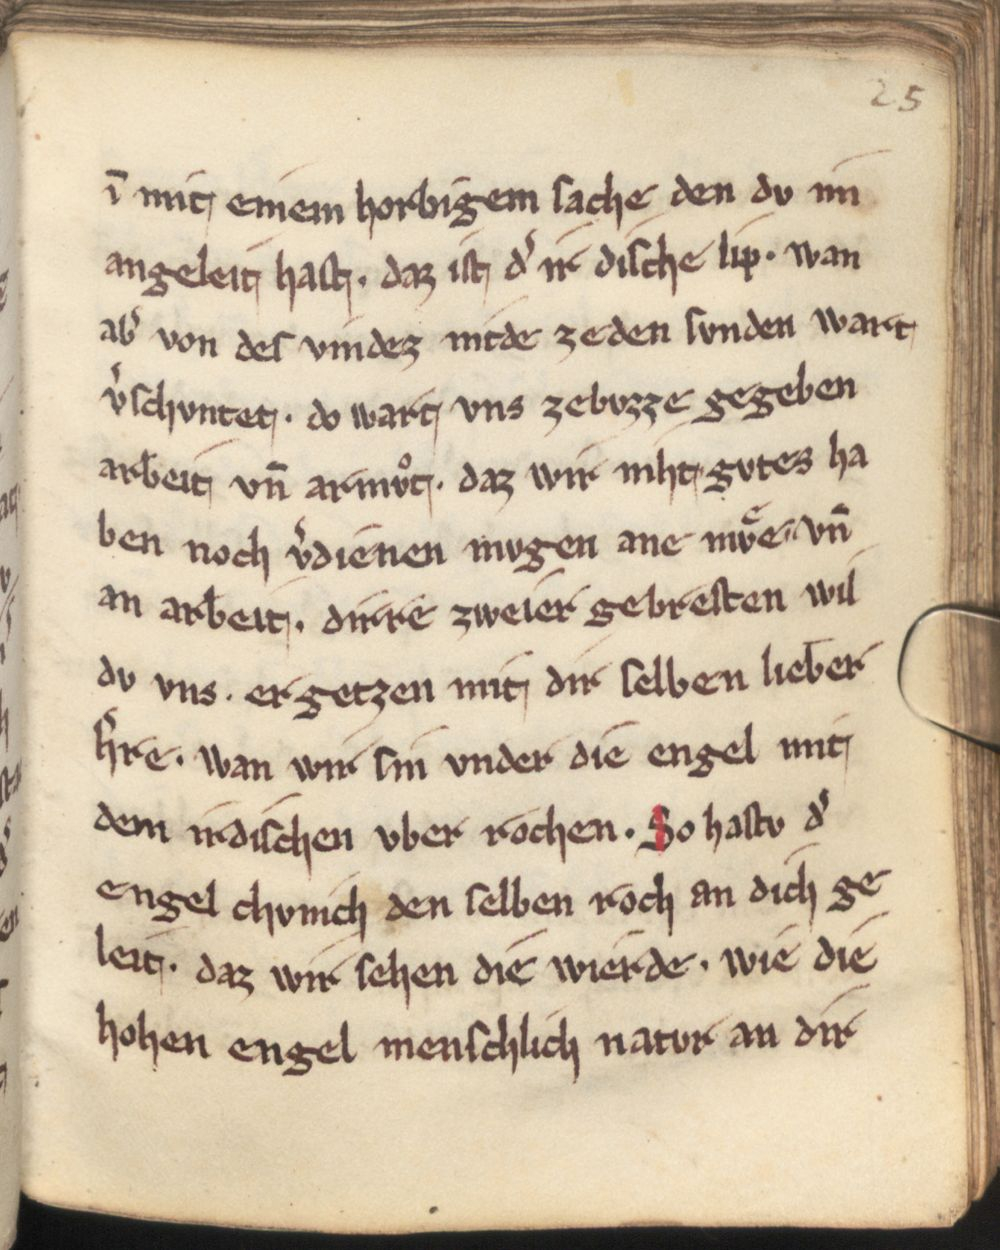 25
ī mit einem horbigem sache den dv im
angeleit hast. daz ist d' ir dische lip. wan
ab' von des vindez nitde zeden svnden wart
v'schvntet. do wart vns zebvzze gegeben
arbeit vn̄ armvͦt. daz wir niht gvtes ha
ben noch v'dienen mvgen ane mvͤe vn̄
an arbeit. dirre zweier gebresten wil
dv vns. ergetzen mit dir selben lieber
h're. wan wir sin vnder die engel mit
dem irdischen vber rochen. So hastv d'
engel chvnich den selben roch an dich ge
leit. daz wir sehen die wierde. wie die
hohen engel menschlich natvr an dir